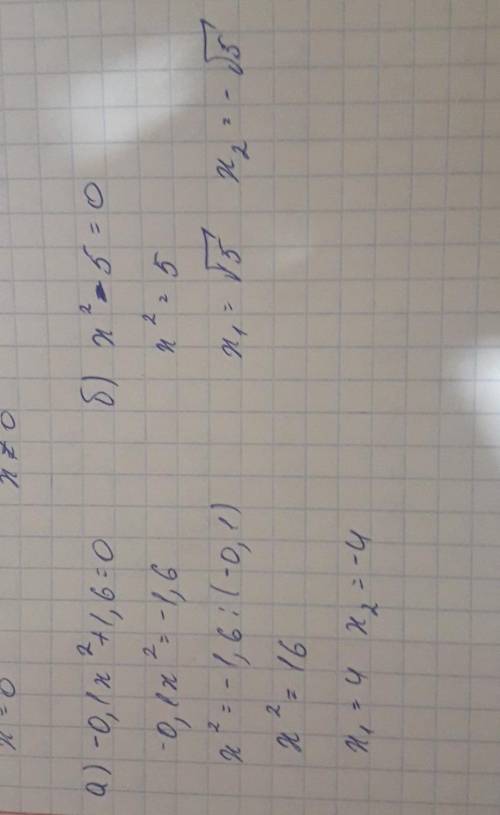 x = 0
x ≠ 0
а) -0,1x² + 1,6 = 0
-0,1x² = -1,6
x² = -1,6 : (-0,1)
x² = 16
x₁ = 4 x₂ = -4
б) x² - 5 = 0
x² = 5
x₁ = √5 x₂ = -√5